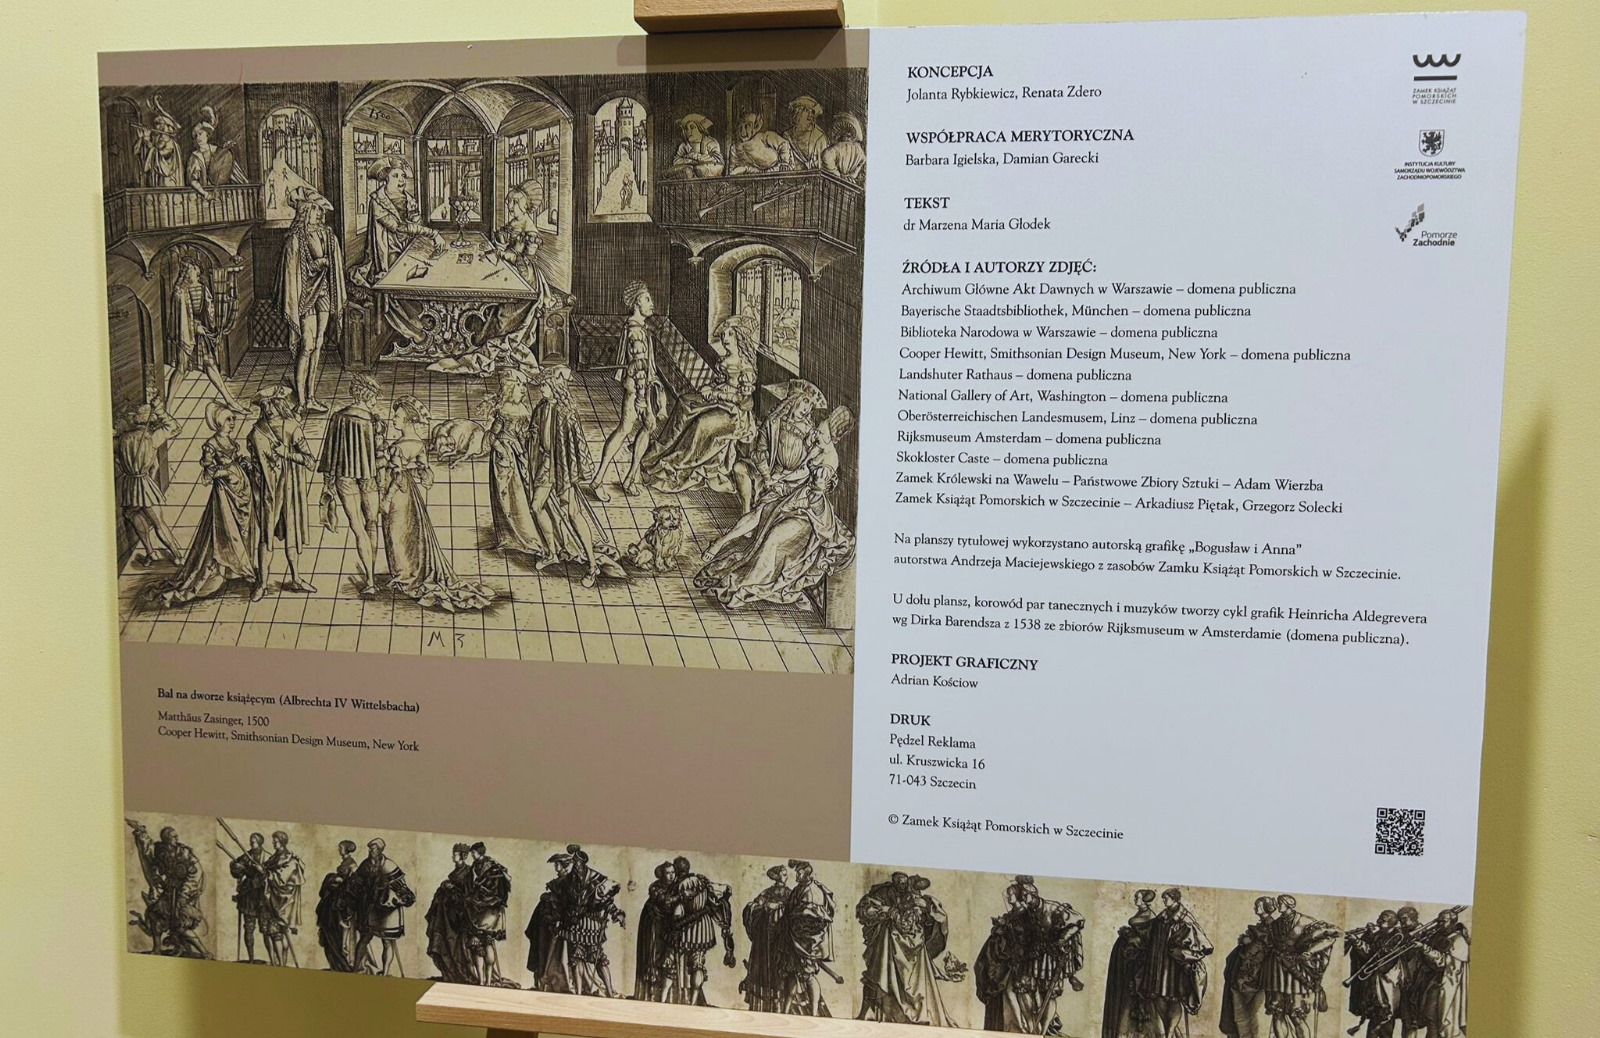 1500
M 3
Bal na dworze książęcym (Albrechta IV Wittelsbacha)
Matthäus Zasinger, 1500
Cooper Hewitt, Smithsonian Design Museum, New York
KONCEPCJA
Jolanta Rybkiewicz, Renata Zdero
WSPÓŁPRACA MERYTORYCZNA
Barbara Igielska, Damian Garecki
TEKST
dr Marzena Maria Głodek
ŹRÓDŁA I AUTORZY ZDJĘĆ:
Archiwum Główne Akt Dawnych w Warszawie – domena publiczna
Bayerische Staadtsbibliothek, München – domena publiczna
Biblioteka Narodowa w Warszawie – domena publiczna
Cooper Hewitt, Smithsonian Design Museum, New York – domena publiczna
Landshuter Rathaus – domena publiczna
National Gallery of Art, Washington – domena publiczna
Oberösterreichischen Landesmusem, Linz – domena publiczna
Rijksmuseum Amsterdam – domena publiczna
Skokloster Caste – domena publiczna
Zamek Królewski na Wawelu – Państwowe Zbiory Sztuki – Adam Wierzba
Zamek Książąt Pomorskich w Szczecinie – Arkadiusz Piętak, Grzegorz Solecki
Na planszy tytułowej wykorzystano autorską grafikę „Bogusław i Anna”
autorstwa Andrzeja Maciejewskiego z zasobów Zamku Książąt Pomorskich w Szczecinie.
U dołu plansz, korowód par tanecznych i muzyków tworzy cykl grafik Heinricha Aldegrevera
wg Dirka Barendsza z 1538 ze zbiorów Rijksmuseum w Amsterdamie (domena publiczna).
PROJEKT GRAFICZNY
Adrian Kościow
DRUK
Pędzel Reklama
ul. Kruszwicka 16
71-043 Szczecin
© Zamek Książąt Pomorskich w Szczecinie
ZAMEK KSIĄŻĄT
POMORSKICH
W SZCZECINIE
INSTYTUCJA KULTURY
SAMORZĄDU WOJEWÓDZTWA
ZACHODNIOPOMORSKIEGO
Pomorze
Zachodnie